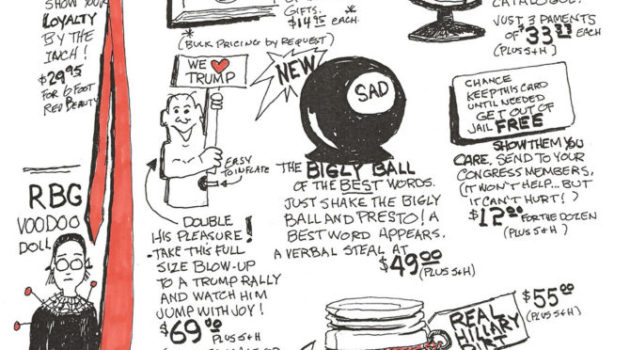 SHOW YOUR
LOYALTY
BY THE
INCH!
$29.95
FOR 6 FOOT
RED BEAUTY
RBG
VOODOO
DOLL
GIFTS.
$14.95 EACH
*
*(BULK PRICING BY REQUEST)
WE ❤ TRUMP
EASY
TO INFLATE
DOUBLE
HIS PLEASURE!
-TAKE THIS FULL
SIZE BLOW-UP
TO A TRUMP RALLY
AND WATCH HIM
JUMP WITH JOY!
$69.00
(PLUS S+H
NEW
SAD
THE BIGLY BALL
OF THE BEST WORDS.
JUST SHAKE THE BIGLY
BALL AND PRESTO! A
BEST WORD APPEARS.
A VERBAL STEAL AT
$49.00
(PLUS S+H)
JUST 3 PAMENTS
OF $33.33 EACH
(PLUS S+H)
CHANCE
KEEP THIS CARD
UNTIL NEEDED
GET OUT OF
JAIL FREE
SHOW THEM YOU
CARE, SEND TO YOUR
CONGRESS MEMBERS,
(IT WON'T HELP... BUT
IT CAN'T HURT!)
$12.00 FOR THE DOZEN
(PLUS S+H)
REAL
HILLARY
DIRT
$55.00
(PLUS S+H)